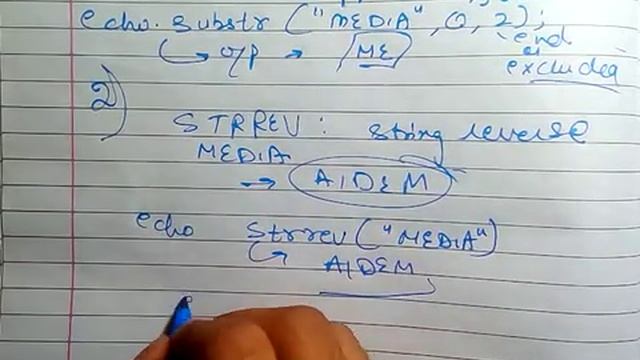 echo.substr ("MEDIA", 0, 2);
end
→ o/p → ME
excluded
2)
STRREV : string reverse
MEDIA
→ AIDEM
echo strrev ("MEDIA")
→ AIDEM